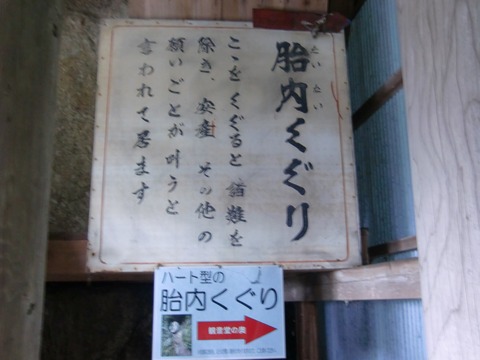 胎内くぐり
たい ない
ここをくぐると諸難を
除き、安産 その他の
願いごとが叶うと
言われて居ます
ハート型の
胎内くぐり
観音堂の奥